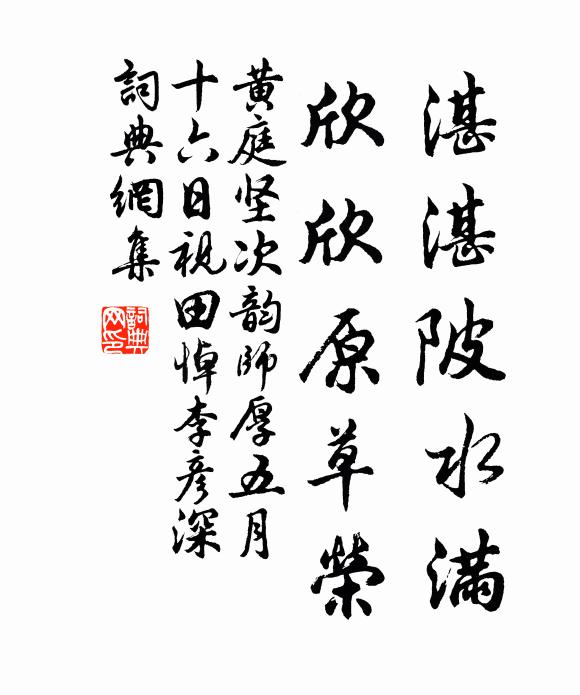 湛湛陂水滿
欣欣原草榮
黃庭坚次韵師厚五月
十六日視田悼李彦深
詞典網集
詞典
网印